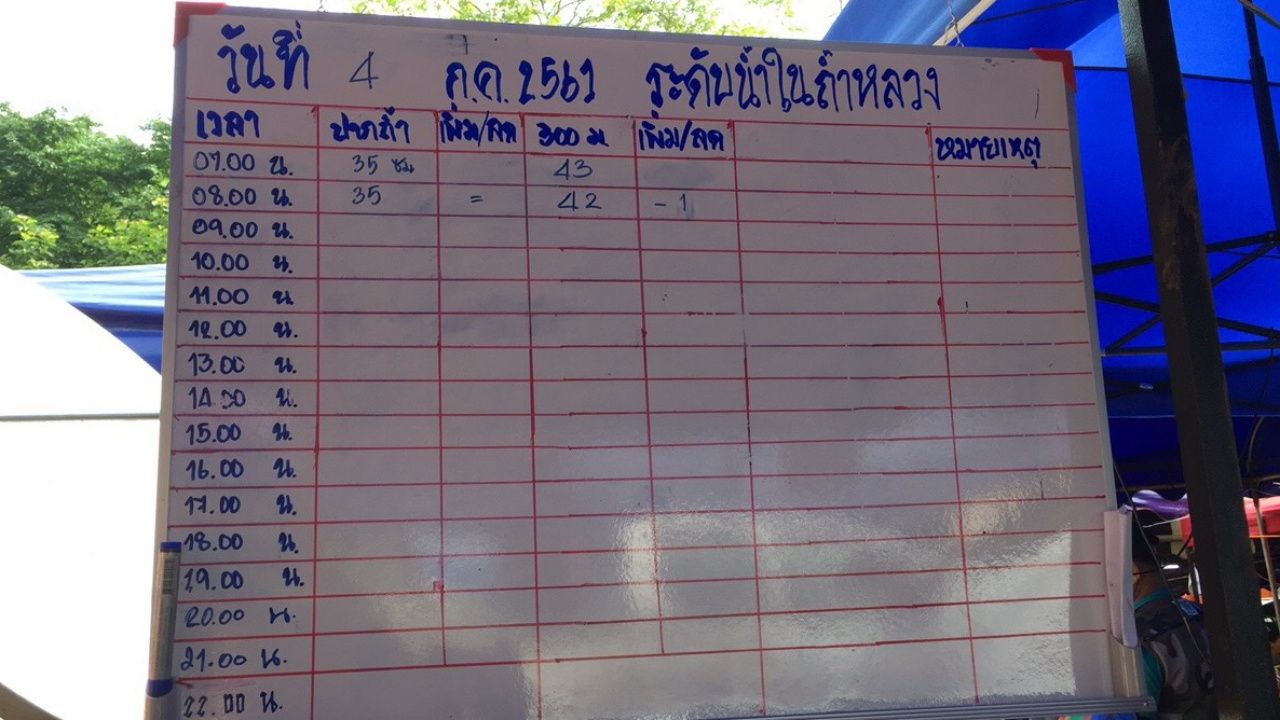 วันที่ 4 ก.ค. 2561 ระดับน้ำในถ้ำหลวง
เวลา ปากถ้ำ เพิ่ม/ลด 300 ม เพิ่ม/ลด หมายเหตุ
07.00 น. 35 ซม 43
08.00 น. 35 = 42 - 1
09.00 น.
10.00 น.
11.00 น.
12.00 น.
13.00 น.
14.00 น.
15.00 น.
16.00 น.
17.00 น.
18.00 น.
19.00 น.
20.00 น.
21.00 น.
22.00 น.